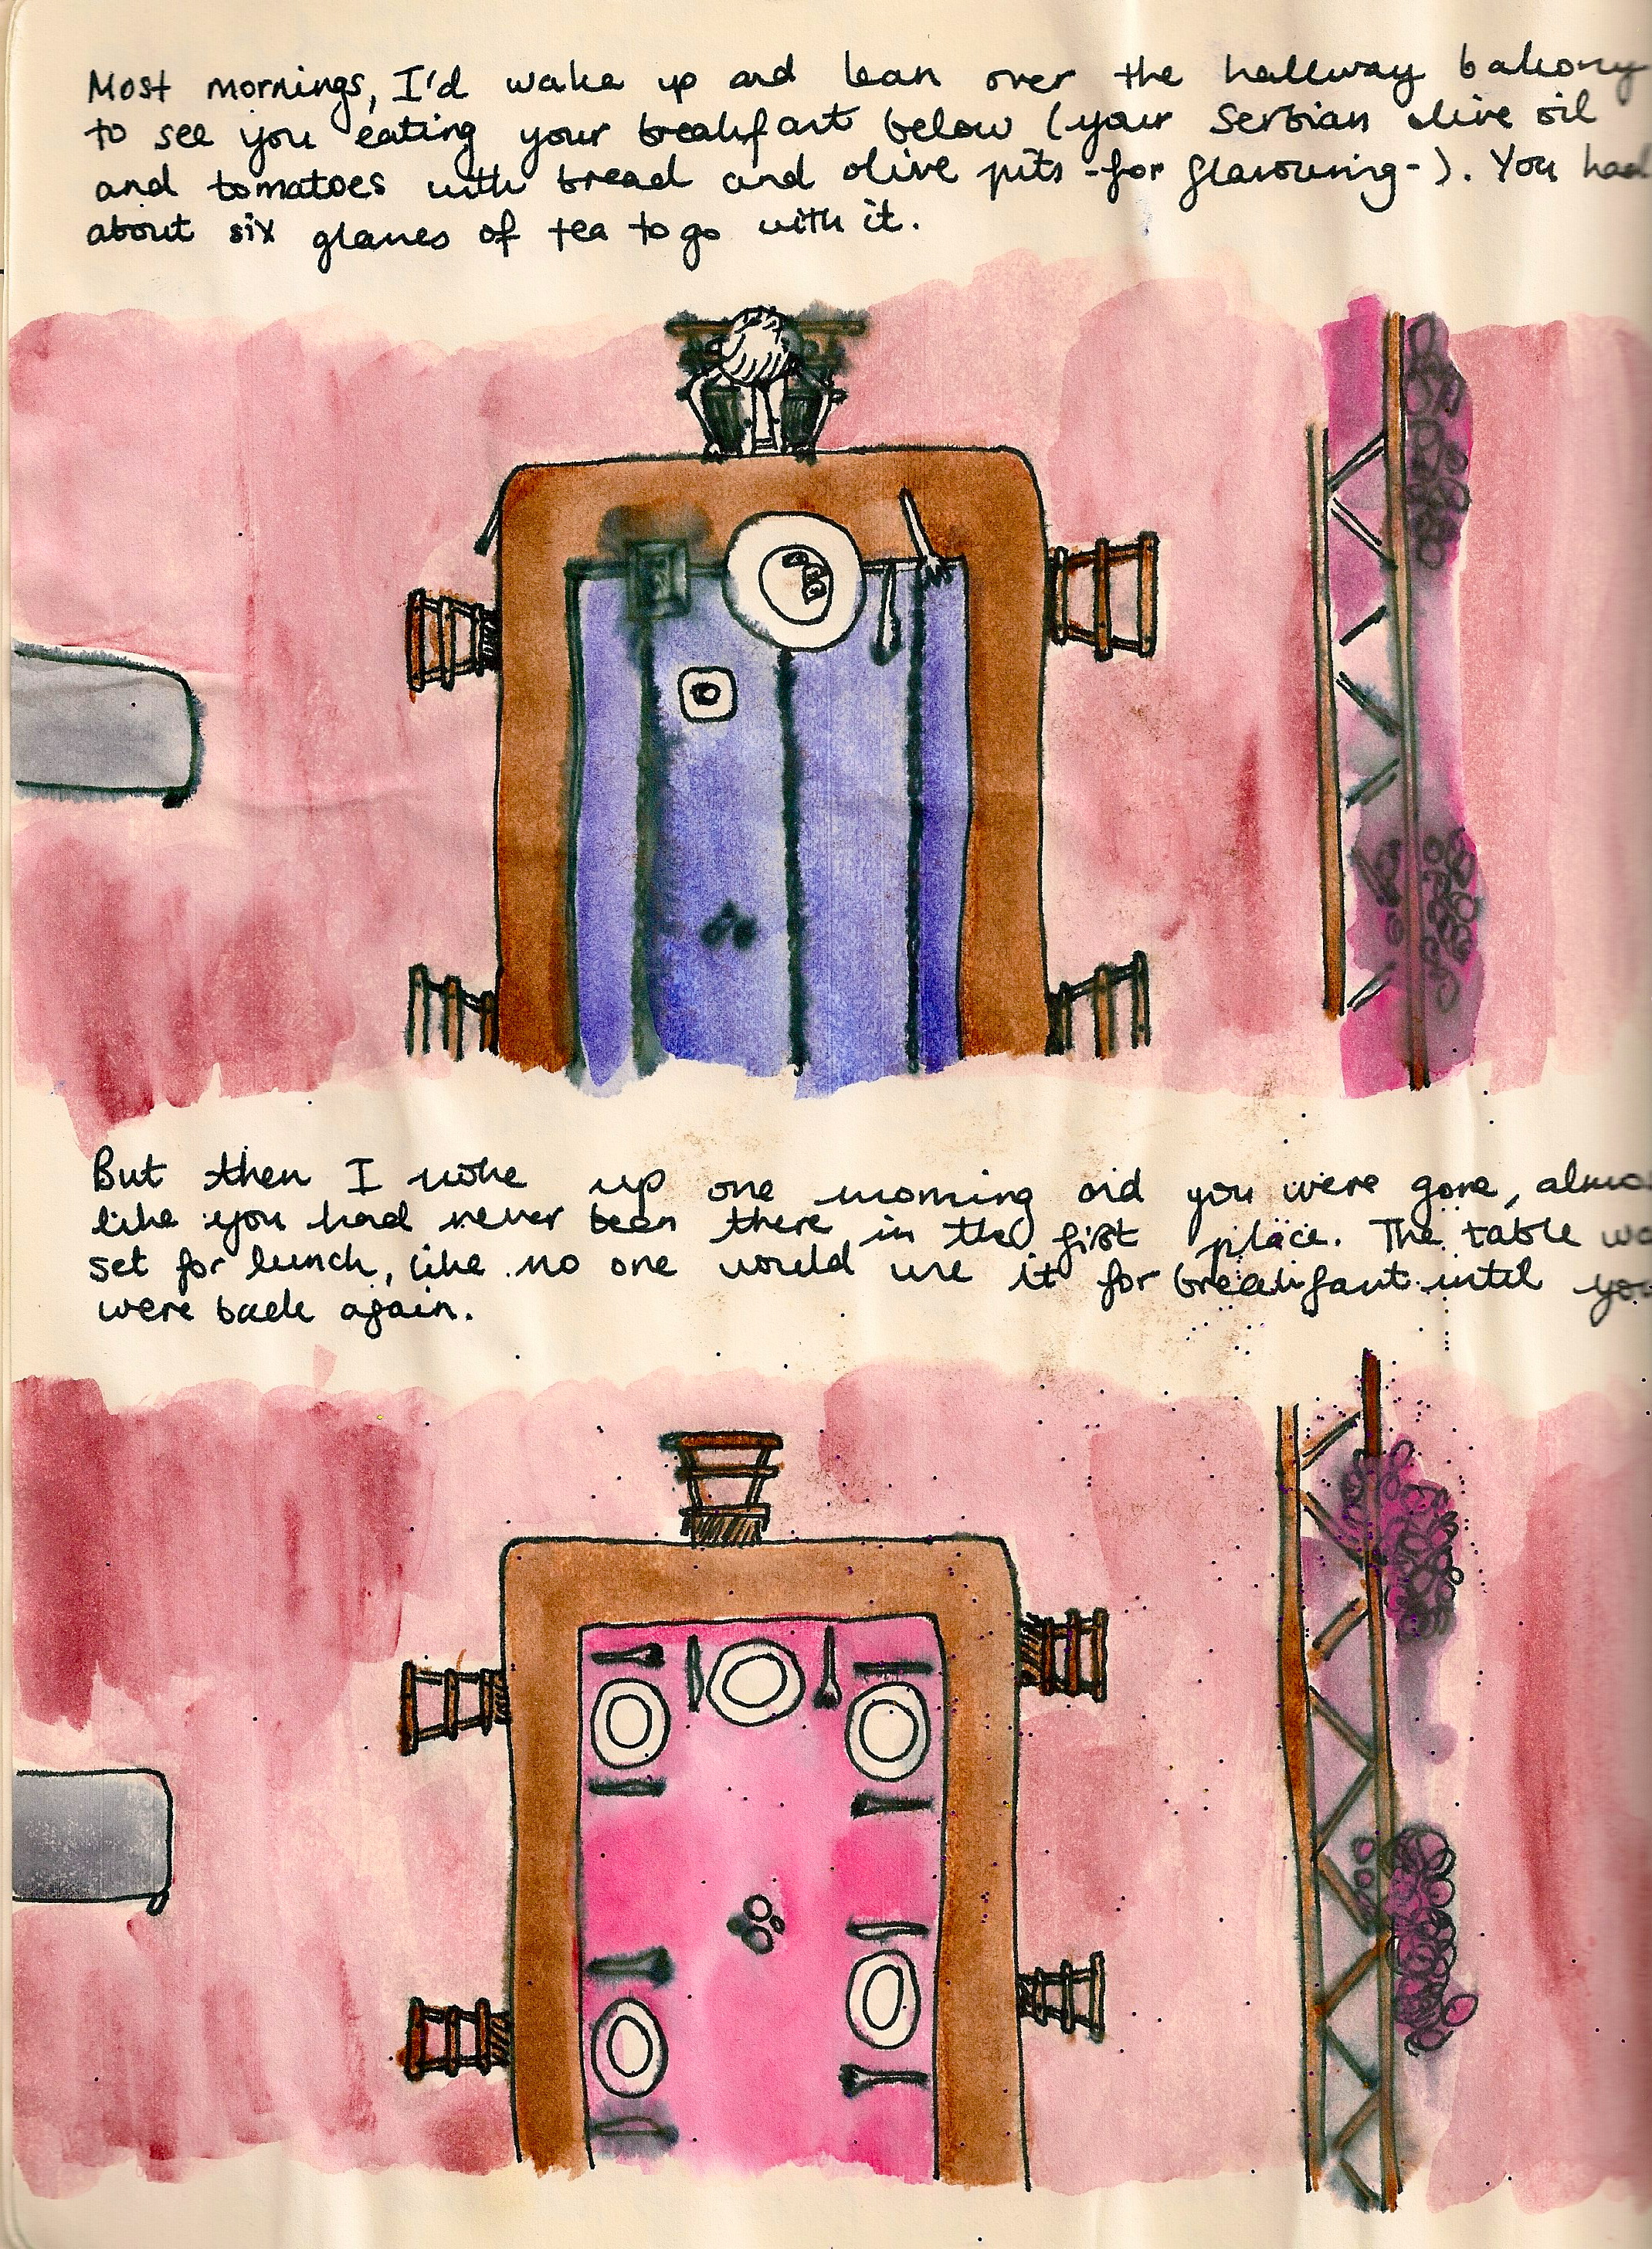 Most mornings, I'd wake up and lean over the hallway balcony
to see you eating your breakfast below (your Serbian olive oil
and tomatoes with bread and olive pits -for flavouring-). You had
about six glasses of tea to go with it.
But then I woke up one morning and you were gone, almos
like you had never been there in the first place. The table wa
set for lunch, like no one would use it for breakfast until you
were back again.